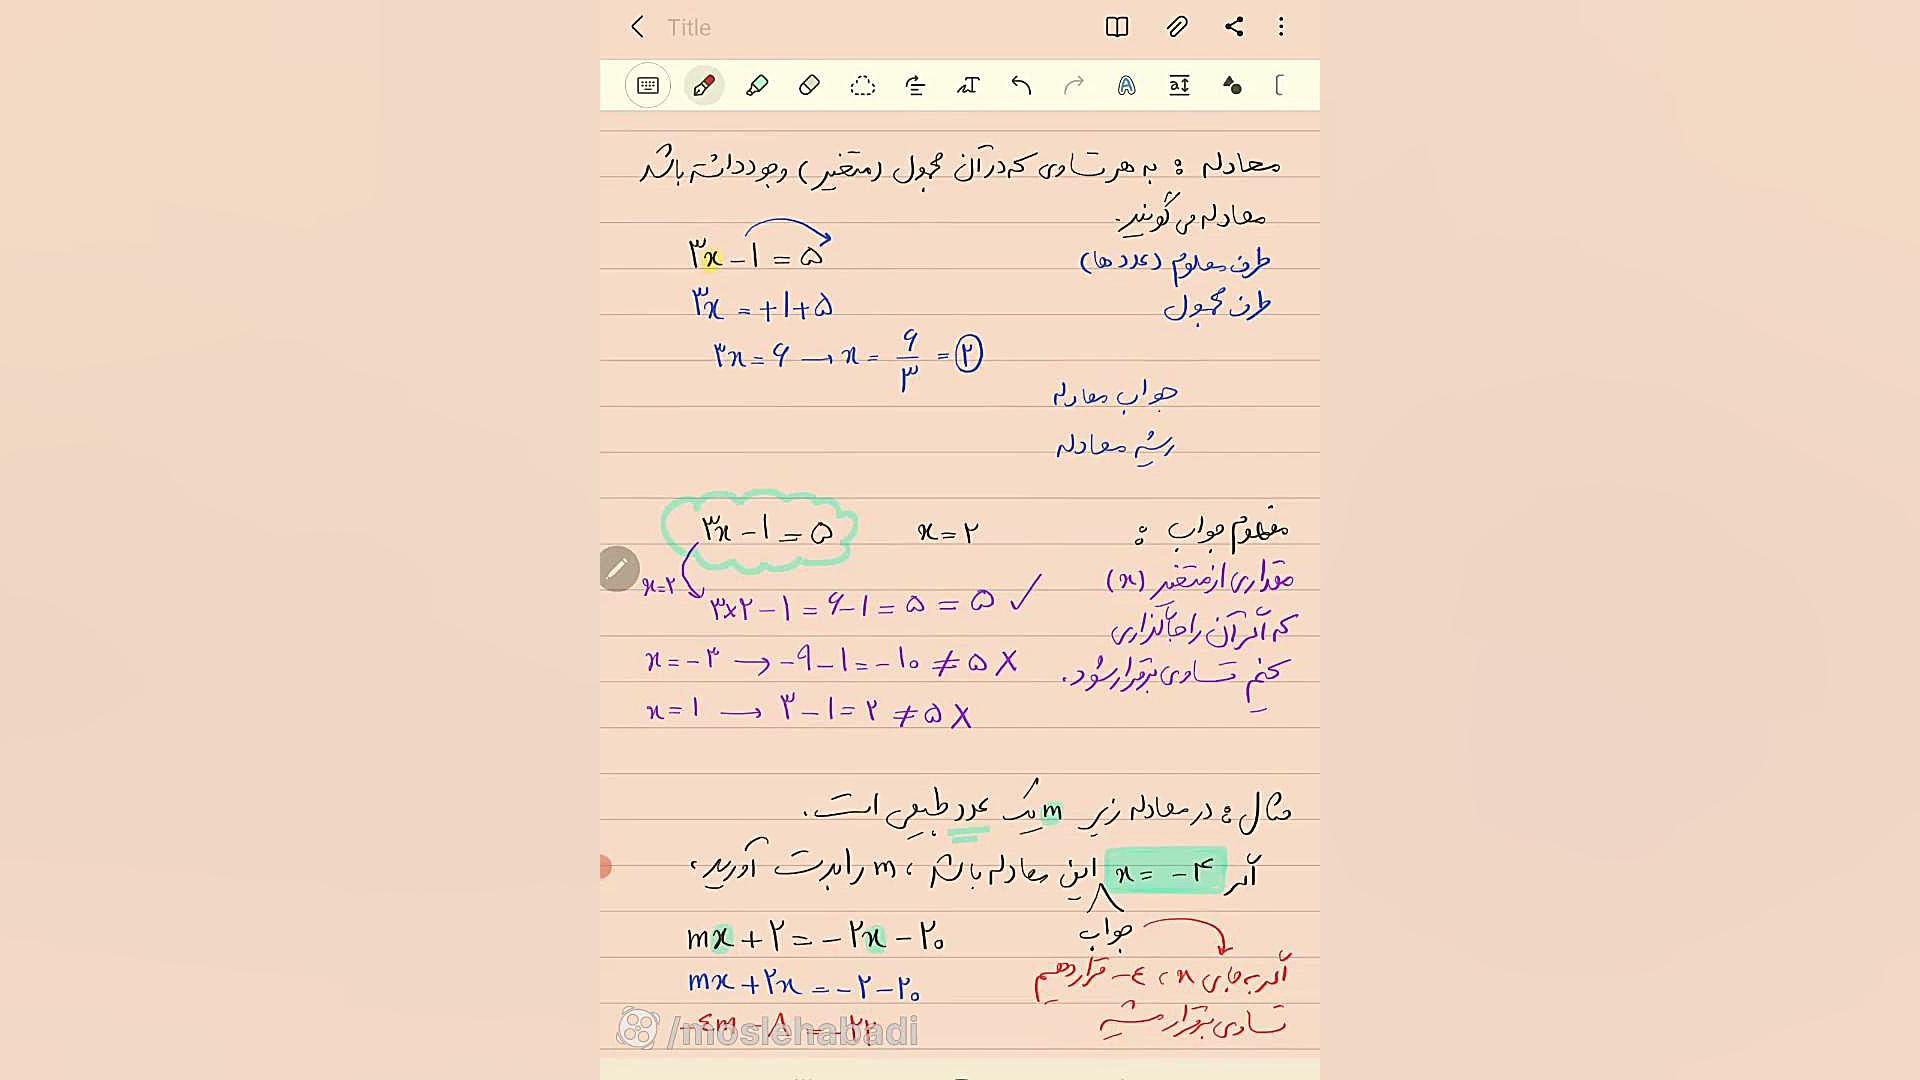 Title
معادله : به هر تساوی که در آن مجهول (متغیر) وجود داشته باشد
معادله می گویند.
۳x - ۱ = ۵
طرف معلوم (عددها)
۳x = +۱+۵
طرف مجهول
۳x = ۶ → x = ۶/۳ = ۲
جواب معادله
ریشه معادله
مفهوم جواب :
۳x - ۱ = ۵ x = ۲
مقداری از متغیر (x)
که اگر آن را جایگذاری
کنیم تساوی برقرار شود.
x=۲
۳×۲ - ۱ = ۶-۱ = ۵ = ۵ ✓
x = -۳ → -۹-۱ = -۱۰ ≠ ۵ X
x = ۱ → ۳-۱ = ۲ ≠ ۵ X
مثال : در معادله زیر m یک عدد طبیعی است.
اگر x = -۴ این معادله باشد ، m را بدست آورید.
جواب
mx + ۲ = -۲x - ۲۰
اگر به جای x ، -٤ قرار دهیم
mx + ۲x = -۲ - ۲۰
تساوی برقرار میشه
-٤m - ۸ = -۲۲
/moslehabadi